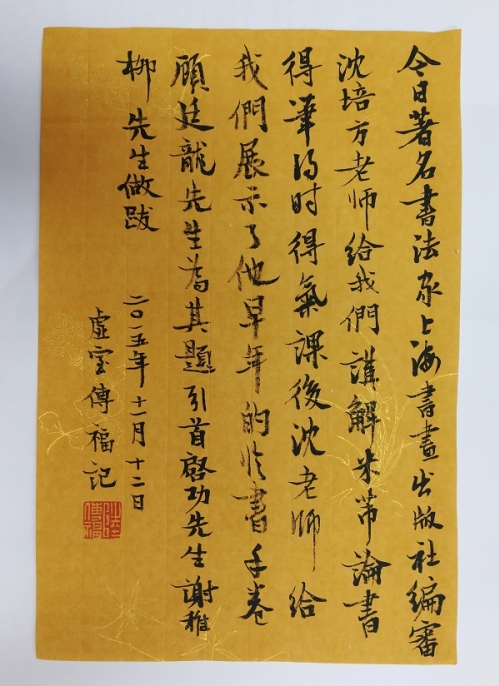 今日著名書法家上海書畫出版社編審
沈培方老师给我們講解米芾論書
得筆得时得氣課後沈老师给
我們展示了他早年的临書手卷
顾廷龍先生為其題引首啓功先生謝稚
柳先生做跋
二〇一五年十一月十二日
虚室傅福记